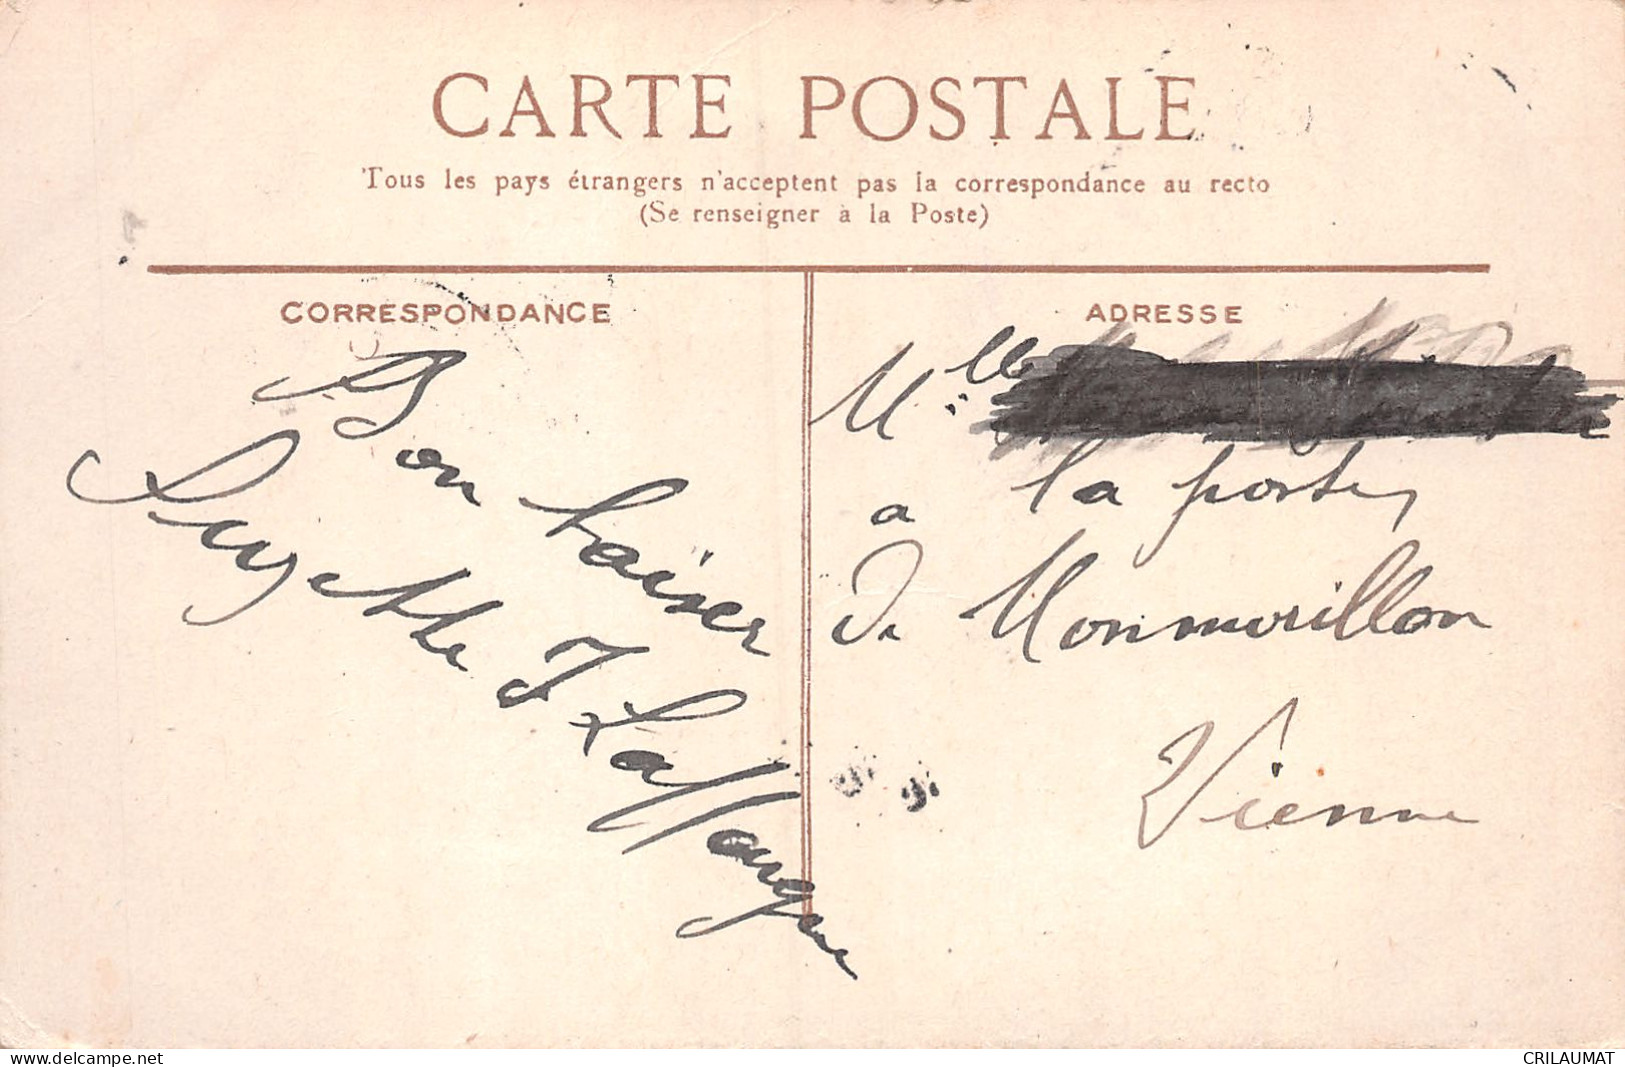 CARTE POSTALE
Tous les pays étrangers n'acceptent pas la correspondance au recto
(Se renseigner à la Poste)
CORRESPONDANCE
Bon baiser
Suzette
ADRESSE
Mlle
a la poste
De Monmorillon
Vienne
delcampe.net
CRILAUMAT